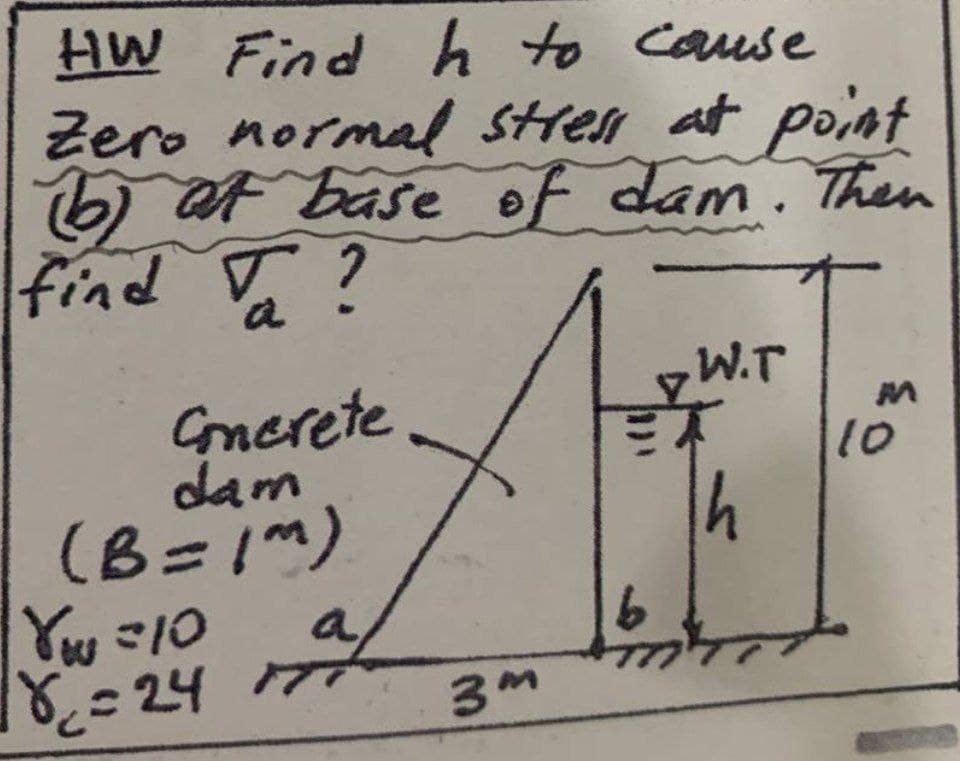 HW Find h to cause
Zero normal stress at point
(b) at base of dam. Then
find σa ?
W.T
10 m
Concrete
dam
(B = 1 m)
h
γw = 10
γc = 24
a
b
3 m